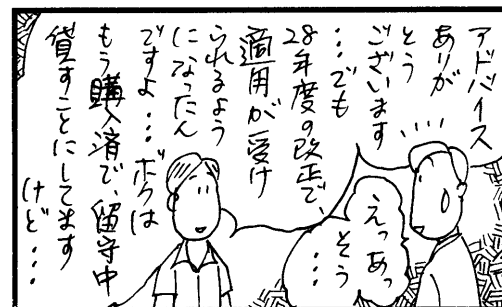 アドバイス
ありが
とう
ございます
…でも
28年度の改正で、
適用が受け
られるよう
になったん
ですよ…ボクは
もう購入済で、留守中
貸すことにしてます
けど…
えっあっ
そう
…